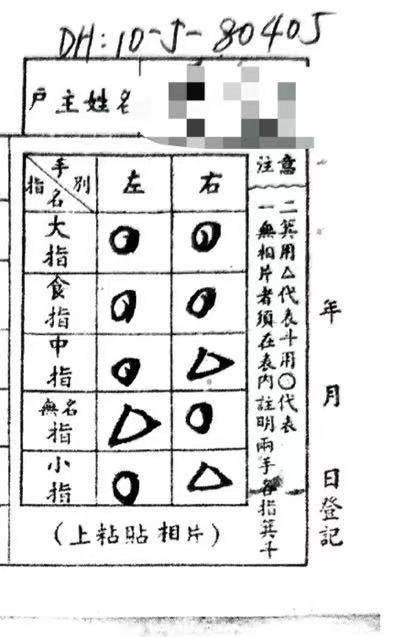 DH:10-J-80405
戶主姓名
手別 指名 左 右
大指 〇 〇
食指 〇 〇
中指 〇 △
無名指 △ 〇
小指 〇 △
(上粘貼相片)
注意
一無相片者須在表內註明兩手各指箕斗
二箕用△代表斗用〇代表
年 月 日登記